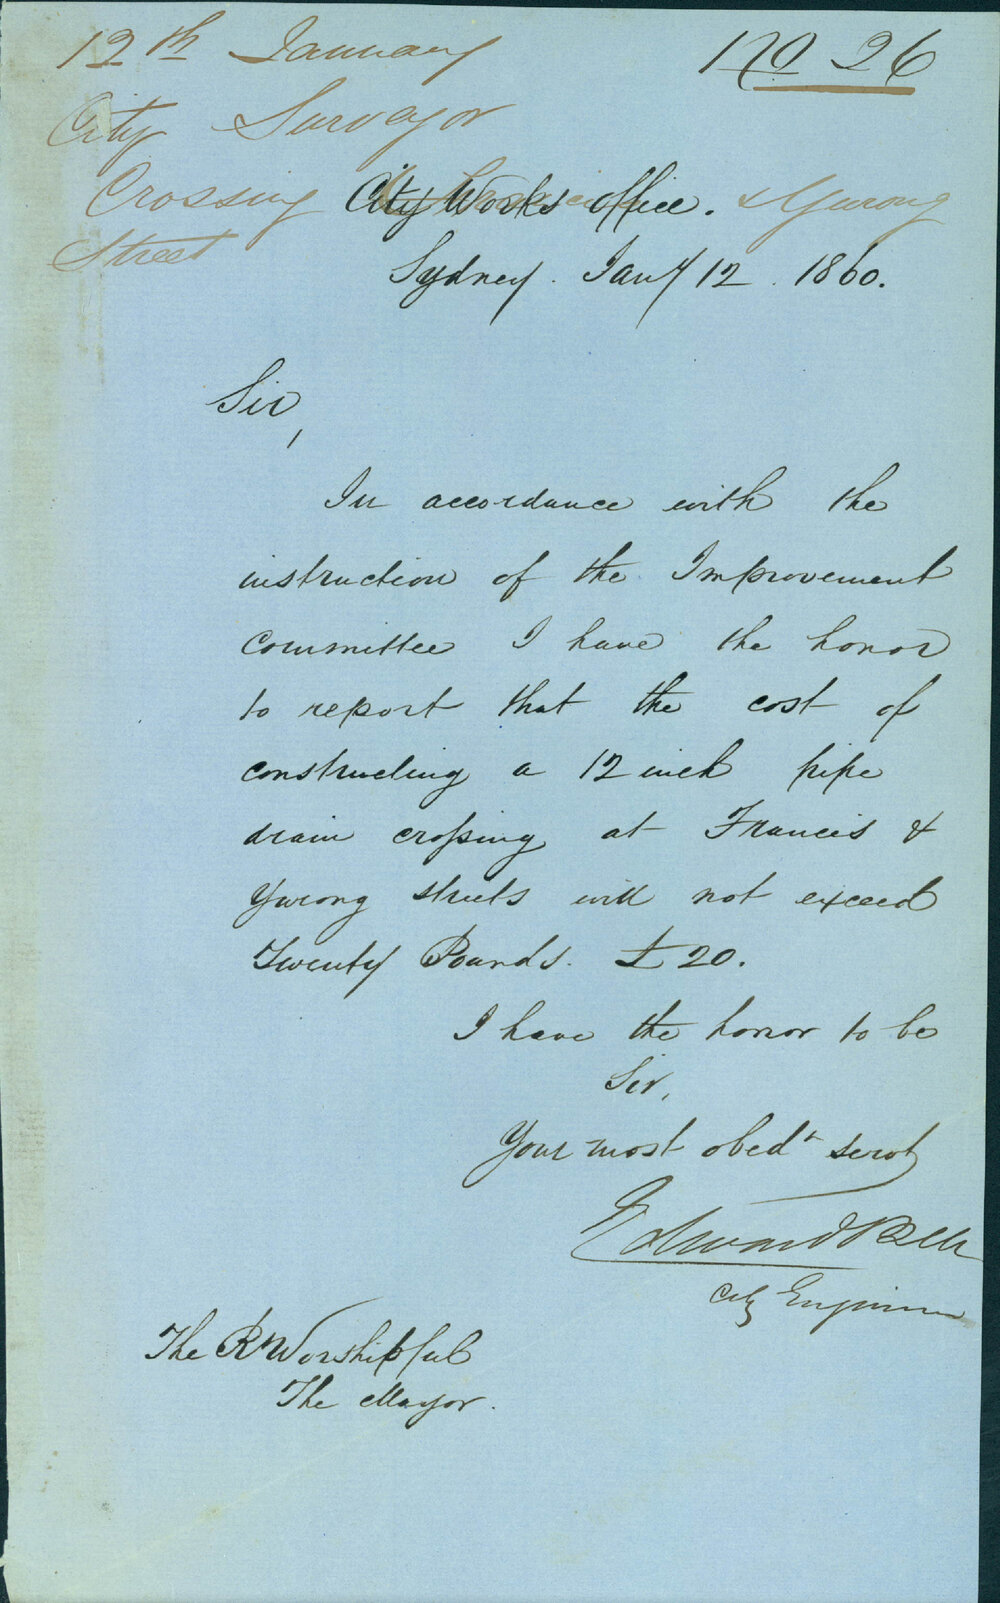 12th January
No 26
City Surveyor
Crossing Francis & Yurong
Street
City Works Office.
Sydney. Jany 12. 1860.
Sir,
In accordance with the
instruction of the Improvement
Committee I have the honor
to report that the cost of
constructing a 12 inch pipe
drain crossing at Francis &
Yurong streets will not exceed
Twenty Pounds. £20.
I have the honor to be
Sir,
Your most obedt servt
Edward Bell
City Engineer
The Rt Worshipful
The Mayor.